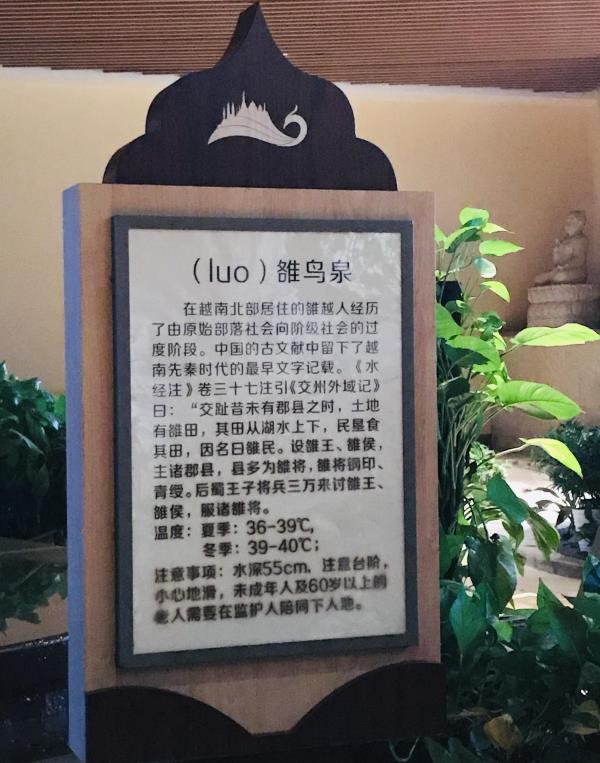 （luo）雒鸟泉
在越南北部居住的雒越人经历
了由原始部落社会向阶级社会的过
度阶段。中国的古文献中留下了越
南先秦时代的最早文字记载。《水
经注》卷三十七注引《交州外域记》
曰：“交趾昔未有郡县之时，土地
有雒田，其田从湖水上下，民垦食
其田，因名曰雒民。设雒王、雒侯，
主诸郡县，县多为雒将，雒将铜印、
青绶。后蜀王子将兵三万来讨雒王、
雒侯，服诸雒将。
温度：夏季：36-39℃，
冬季：39-40℃；
注意事项：水深55cm，注意台阶，
小心地滑，未成年人及60岁以上的
老人需要在监护人陪同下入池。